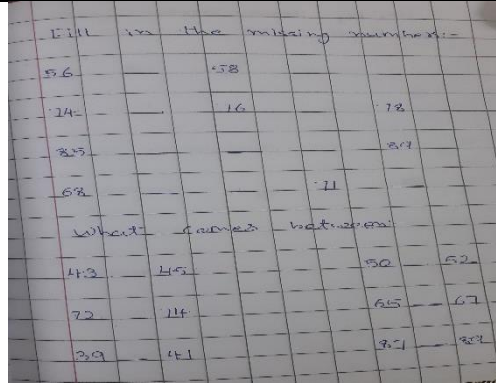 Fill in the missing number:-
56 — 58
14 — 16 — 18
85 — — 87
68 — — 71
What comes between
43 — 45 50 — 52
72 — 74 65 — 67
39 — 41 87 — 89